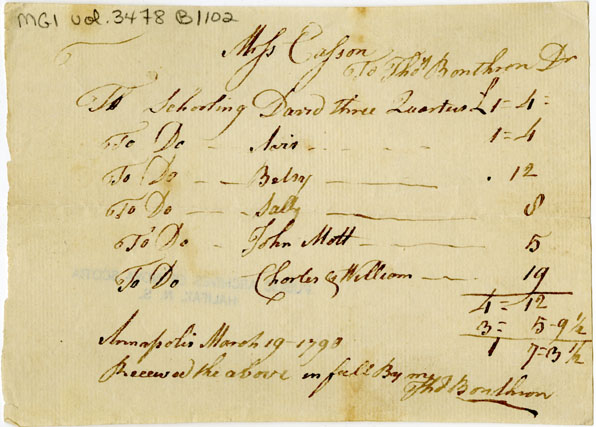 MG1 vol. 3478 B1102
Miss Casson
To Thos Bonthron Dr
To Schooling David three Quarters £ 1 = 4 =
To Do - Avis - - - - 1 = 4
To Do - - Betsy - - - . 12
To Do - - - Sally - - - 8
To Do - - - John Mott - - - 5
To Do Charles & William - - - 19
4 = 12
3 = 5 - 9 1/2
1 7 = 3 1/2
Annapolis March 19 - 1798
Received the above in full By me
Thos Bonthron
HALIFAX, N. S.